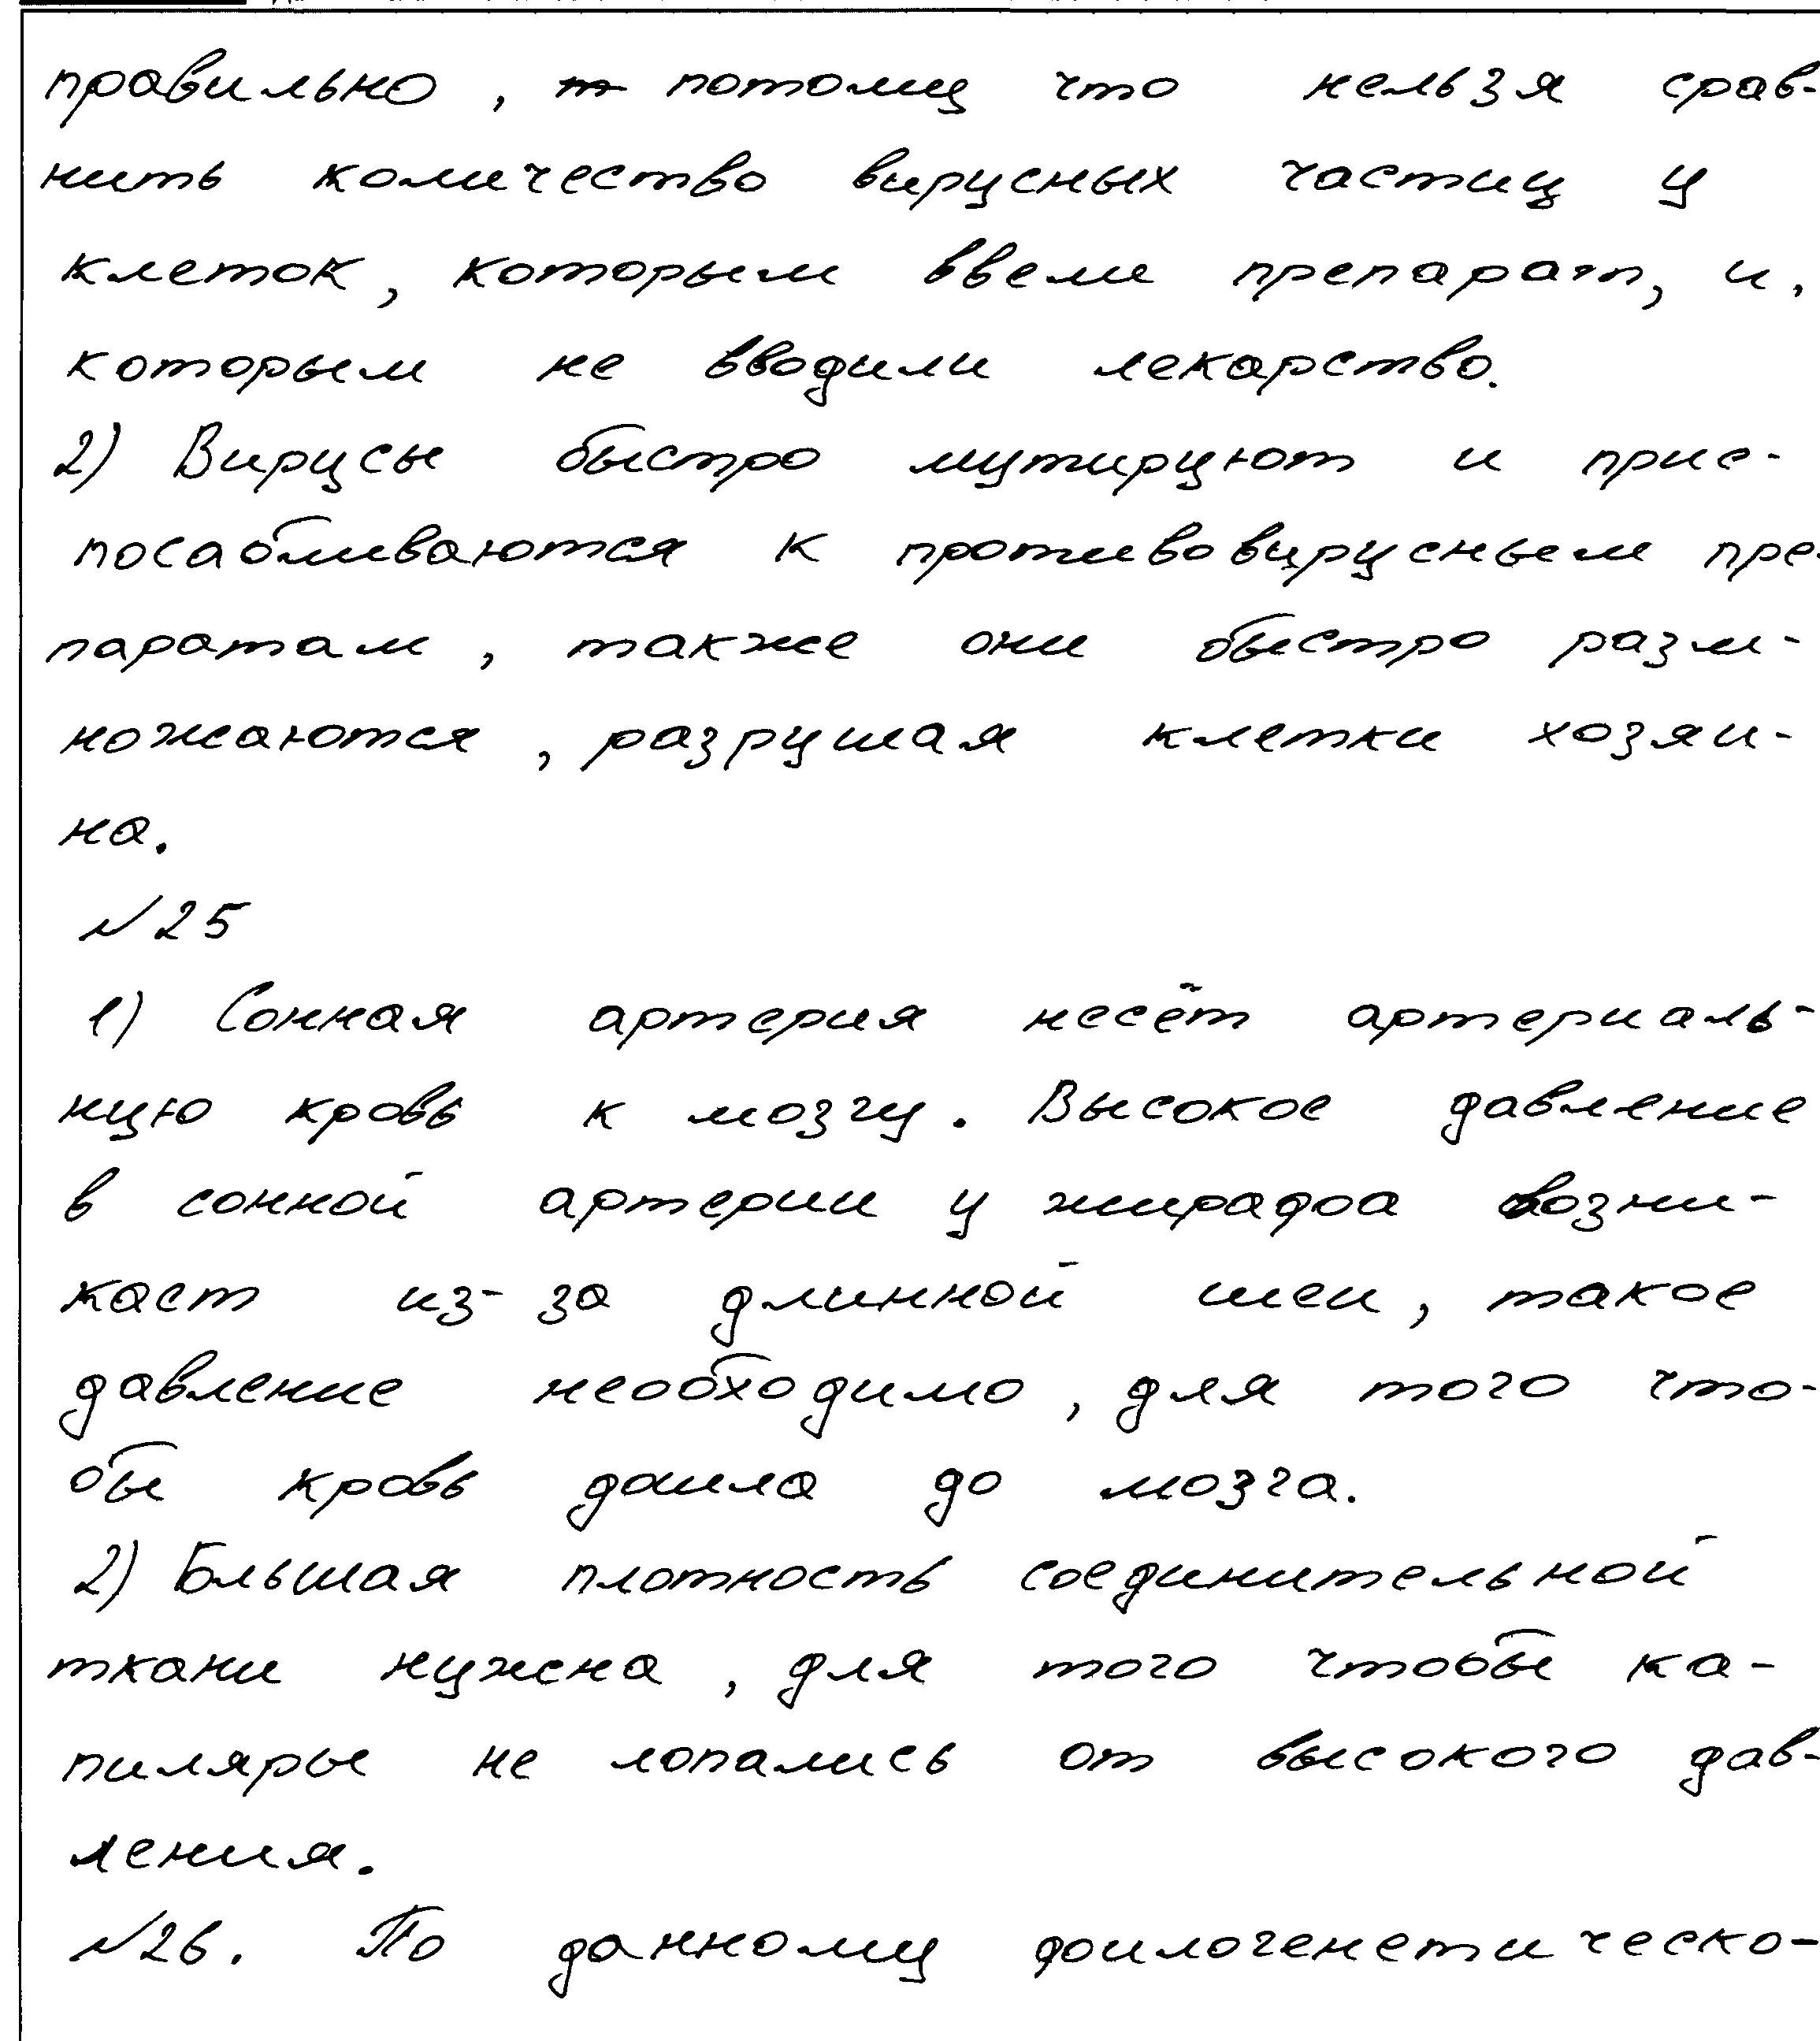 правильно, потому что нельзя срав-
нить количество вирусных частиц у
клеток, которым ввели препарат, и,
которым не вводили лекарство.
2) Вирусы быстро мутируют и прис-
посабливаются к противовирусным пре-
паратам, также они быстро разм-
ножаются, разрушая клетки хозяи-
на.
№25
1) Сонная артерия несёт артериаль-
ную кровь к мозгу. Высокое давление
в сонной артерии у жирафа возни-
кает из-за длинной шеи, такое
давление необходимо, для того что-
бы кровь дошла до мозга.
2) Большая плотность соединительной
ткани нужна, для того чтобы ка-
пиляры не лопались от высокого дав-
ления.
№26. По данному филогенетическо-